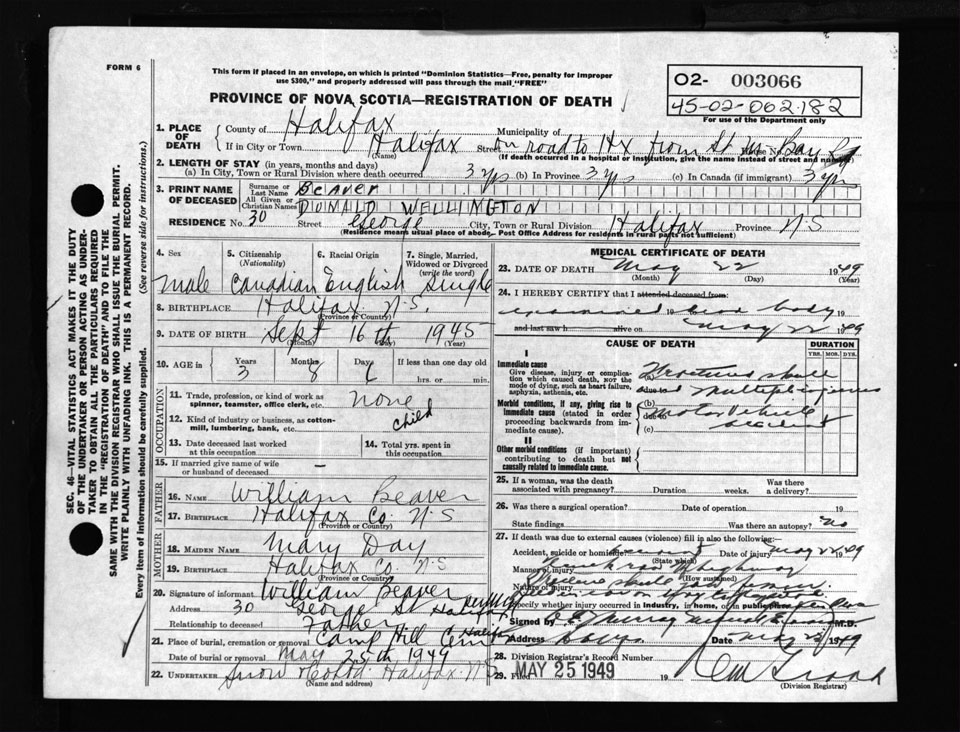 FORM 6
This form if placed in an envelope, on which is printed "Dominion Statistics—Free, penalty for improper
use $300," and properly addressed will pass through the mail "FREE"
PROVINCE OF NOVA SCOTIA—REGISTRATION OF DEATH
02- 003066
45-02-062182
For use of the Department only
SEC. 46—VITAL STATISTICS ACT MAKES IT THE DUTY
OF THE UNDERTAKER OR PERSON ACTING AS UNDER-
TAKER TO OBTAIN ALL THE PARTICULARS REQUIRED
IN THE "REGISTRATION OF DEATH" AND TO FILE THE
SAME WITH THE DIVISION REGISTRAR WHO SHALL ISSUE THE BURIAL PERMIT.
WRITE PLAINLY WITH UNFADING INK. THIS IS A PERMANENT RECORD.
Every item of information should be carefully supplied. (See reverse side for instructions.)
1. PLACE OF DEATH
County of Halifax Municipality of
If in City or Town Halifax Street on road to Hx from St M Bay Rd House No.
(Name) (If death occurred in a hospital or institution, give the name instead of street and number)
2. LENGTH OF STAY (in years, months and days)
(a) In City, Town or Rural Division where death occurred 3 yrs (b) In Province 3 yrs (c) In Canada (if immigrant) 3 yrs
3. PRINT NAME OF DECEASED
Surname or Last Name BEAVER
All Given or Christian Names DONALD WELLINGTON
RESIDENCE No. 30 Street George City, Town or Rural Division Halifax Province N.S
(Residence means usual place of abode. Post Office Address for residents in rural parts not sufficient)
4. Sex Male
5. Citizenship (Nationality) Canadian
6. Racial Origin English
7. Single, Married, Widowed or Divorced (write the word) Single
8. BIRTHPLACE Halifax N.S.
(Province or Country)
9. DATE OF BIRTH Sept 16th 1945
(Month) (Day) (Year)
10. AGE in Years 3 Months 8 Days 6 If less than one day old
hrs. or min.
OCCUPATION
11. Trade, profession, or kind of work as
spinner, teamster, office clerk, etc. none
12. Kind of industry or business, as cotton-
mill, lumbering, bank, etc. child
13. Date deceased last worked
at this occupation
14. Total yrs. spent in
this occupation
15. If married give name of wife
or husband of deceased —
FATHER
16. NAME William Beaver
17. BIRTHPLACE Halifax Co. N.S
(Province or Country)
MOTHER
18. MAIDEN NAME Mary Day
19. BIRTHPLACE Halifax Co N.S
(Province or Country)
20. Signature of informant William Beaver
Address 30 George St Halifax
Relationship to deceased Father
21. Place of burial, cremation or removal Camp Hill Cem Halifax
Date of burial or removal May 25th 1949
22. UNDERTAKER Snow Halifax N.S
(Name and address)
MEDICAL CERTIFICATE OF DEATH
23. DATE OF DEATH May 22 1949
(Month) (Day) (Year)
24. I HEREBY CERTIFY that I attended deceased from:
examined 19 dead body
and last saw h alive on May 22 1949
CAUSE OF DEATH
DURATION
YRS. MOS. DYS.
I
Immediate cause
Give disease, injury or complica-
tion which caused death, NOT the
mode of dying, such as heart failure,
asphyxia, asthenia, etc.
(a) Fractured skull
due to multiple injuries
Morbid conditions, if any, giving rise to
immediate cause (stated in order
proceeding backwards from im-
mediate cause).
(b)
due to Motor Vehicle
(c) accident
II
Other morbid conditions (if important)
contributing to death but not
causally related to immediate cause.
25. If a woman, was the death
associated with pregnancy? Duration weeks. Was there
a delivery?
26. Was there a surgical operation? Date of operation 19
State findings Was there an autopsy? no
27. If death was due to external causes (violence) fill in also the following:
Accident, suicide or homicide Date of injury May 22 1949
(State which)
Manner of injury highway
(How sustained)
Nature of injury
Specify whether injury occurred in industry, in home, or in public
Signed by Murray M.D.
Address Date May 23 1949
28. Division Registrar's Record Number
29. Filed MAY 25 1949 19
(Division Registrar)